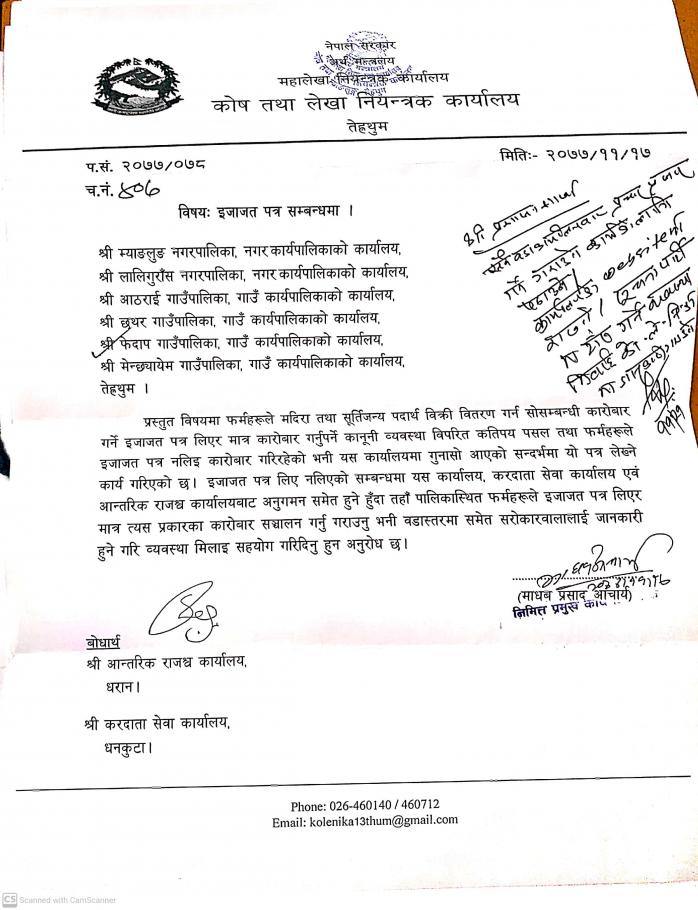 नेपाल सरकार
अर्थ मन्त्रालय
महालेखा नियन्त्रक कार्यालय
कोष तथा लेखा नियन्त्रक कार्यालय
तेह्रथुम
प.सं. २०७७/०७८
मितिः- २०७७/११/१७
च.नं. ४०७
विषयः इजाजत पत्र सम्बन्धमा ।
श्री म्याङलुङ नगरपालिका, नगर कार्यपालिकाको कार्यालय,
श्री लालिगुराँस नगरपालिका, नगर कार्यपालिकाको कार्यालय,
श्री आठराई गाउँपालिका, गाउँ कार्यपालिकाको कार्यालय,
श्री छथर गाउँपालिका, गाउँ कार्यपालिकाको कार्यालय,
श्री फेदाप गाउँपालिका, गाउँ कार्यपालिकाको कार्यालय,
श्री मेन्छयायेम गाउँपालिका, गाउँ कार्यपालिकाको कार्यालय,
तेह्रथुम ।
प्रस्तुत विषयमा फर्महरूले मदिरा तथा सूर्तिजन्य पदार्थ विक्री वितरण गर्न सोसम्बन्धी कारोबार
गर्ने इजाजत पत्र लिएर मात्र कारोबार गर्नुपर्ने कानूनी व्यवस्था विपरित कतिपय पसल तथा फर्महरूले
इजाजत पत्र नलिइ कारोबार गरिरहेको भनी यस कार्यालयमा गुनासो आएको सन्दर्भमा यो पत्र लेख्ने
कार्य गरिएको छ। इजाजत पत्र लिए नलिएको सम्बन्धमा यस कार्यालय, करदाता सेवा कार्यालय एवं
आन्तरिक राजश्व कार्यालयबाट अनुगमन समेत हुने हुँदा तहाँ पालिकास्थित फर्महरूले इजाजत पत्र लिएर
मात्र त्यस प्रकारका कारोबार सञ्चालन गर्नु गराउनु भनी वडास्तरमा समेत सरोकारवालालाई जानकारी
हुने गरि व्यवस्था मिलाइ सहयोग गरिदिनु हुन अनुरोध छ।
(माधब प्रसाद आचार्य)
निमित्त प्रमुख
बोधार्थ
श्री आन्तरिक राजश्व कार्यालय,
धरान।
श्री करदाता सेवा कार्यालय,
धनकुटा।
Phone: 026-460140 / 460712
Email: kolenika13thum@gmail.com
CS Scanned with CamScanner